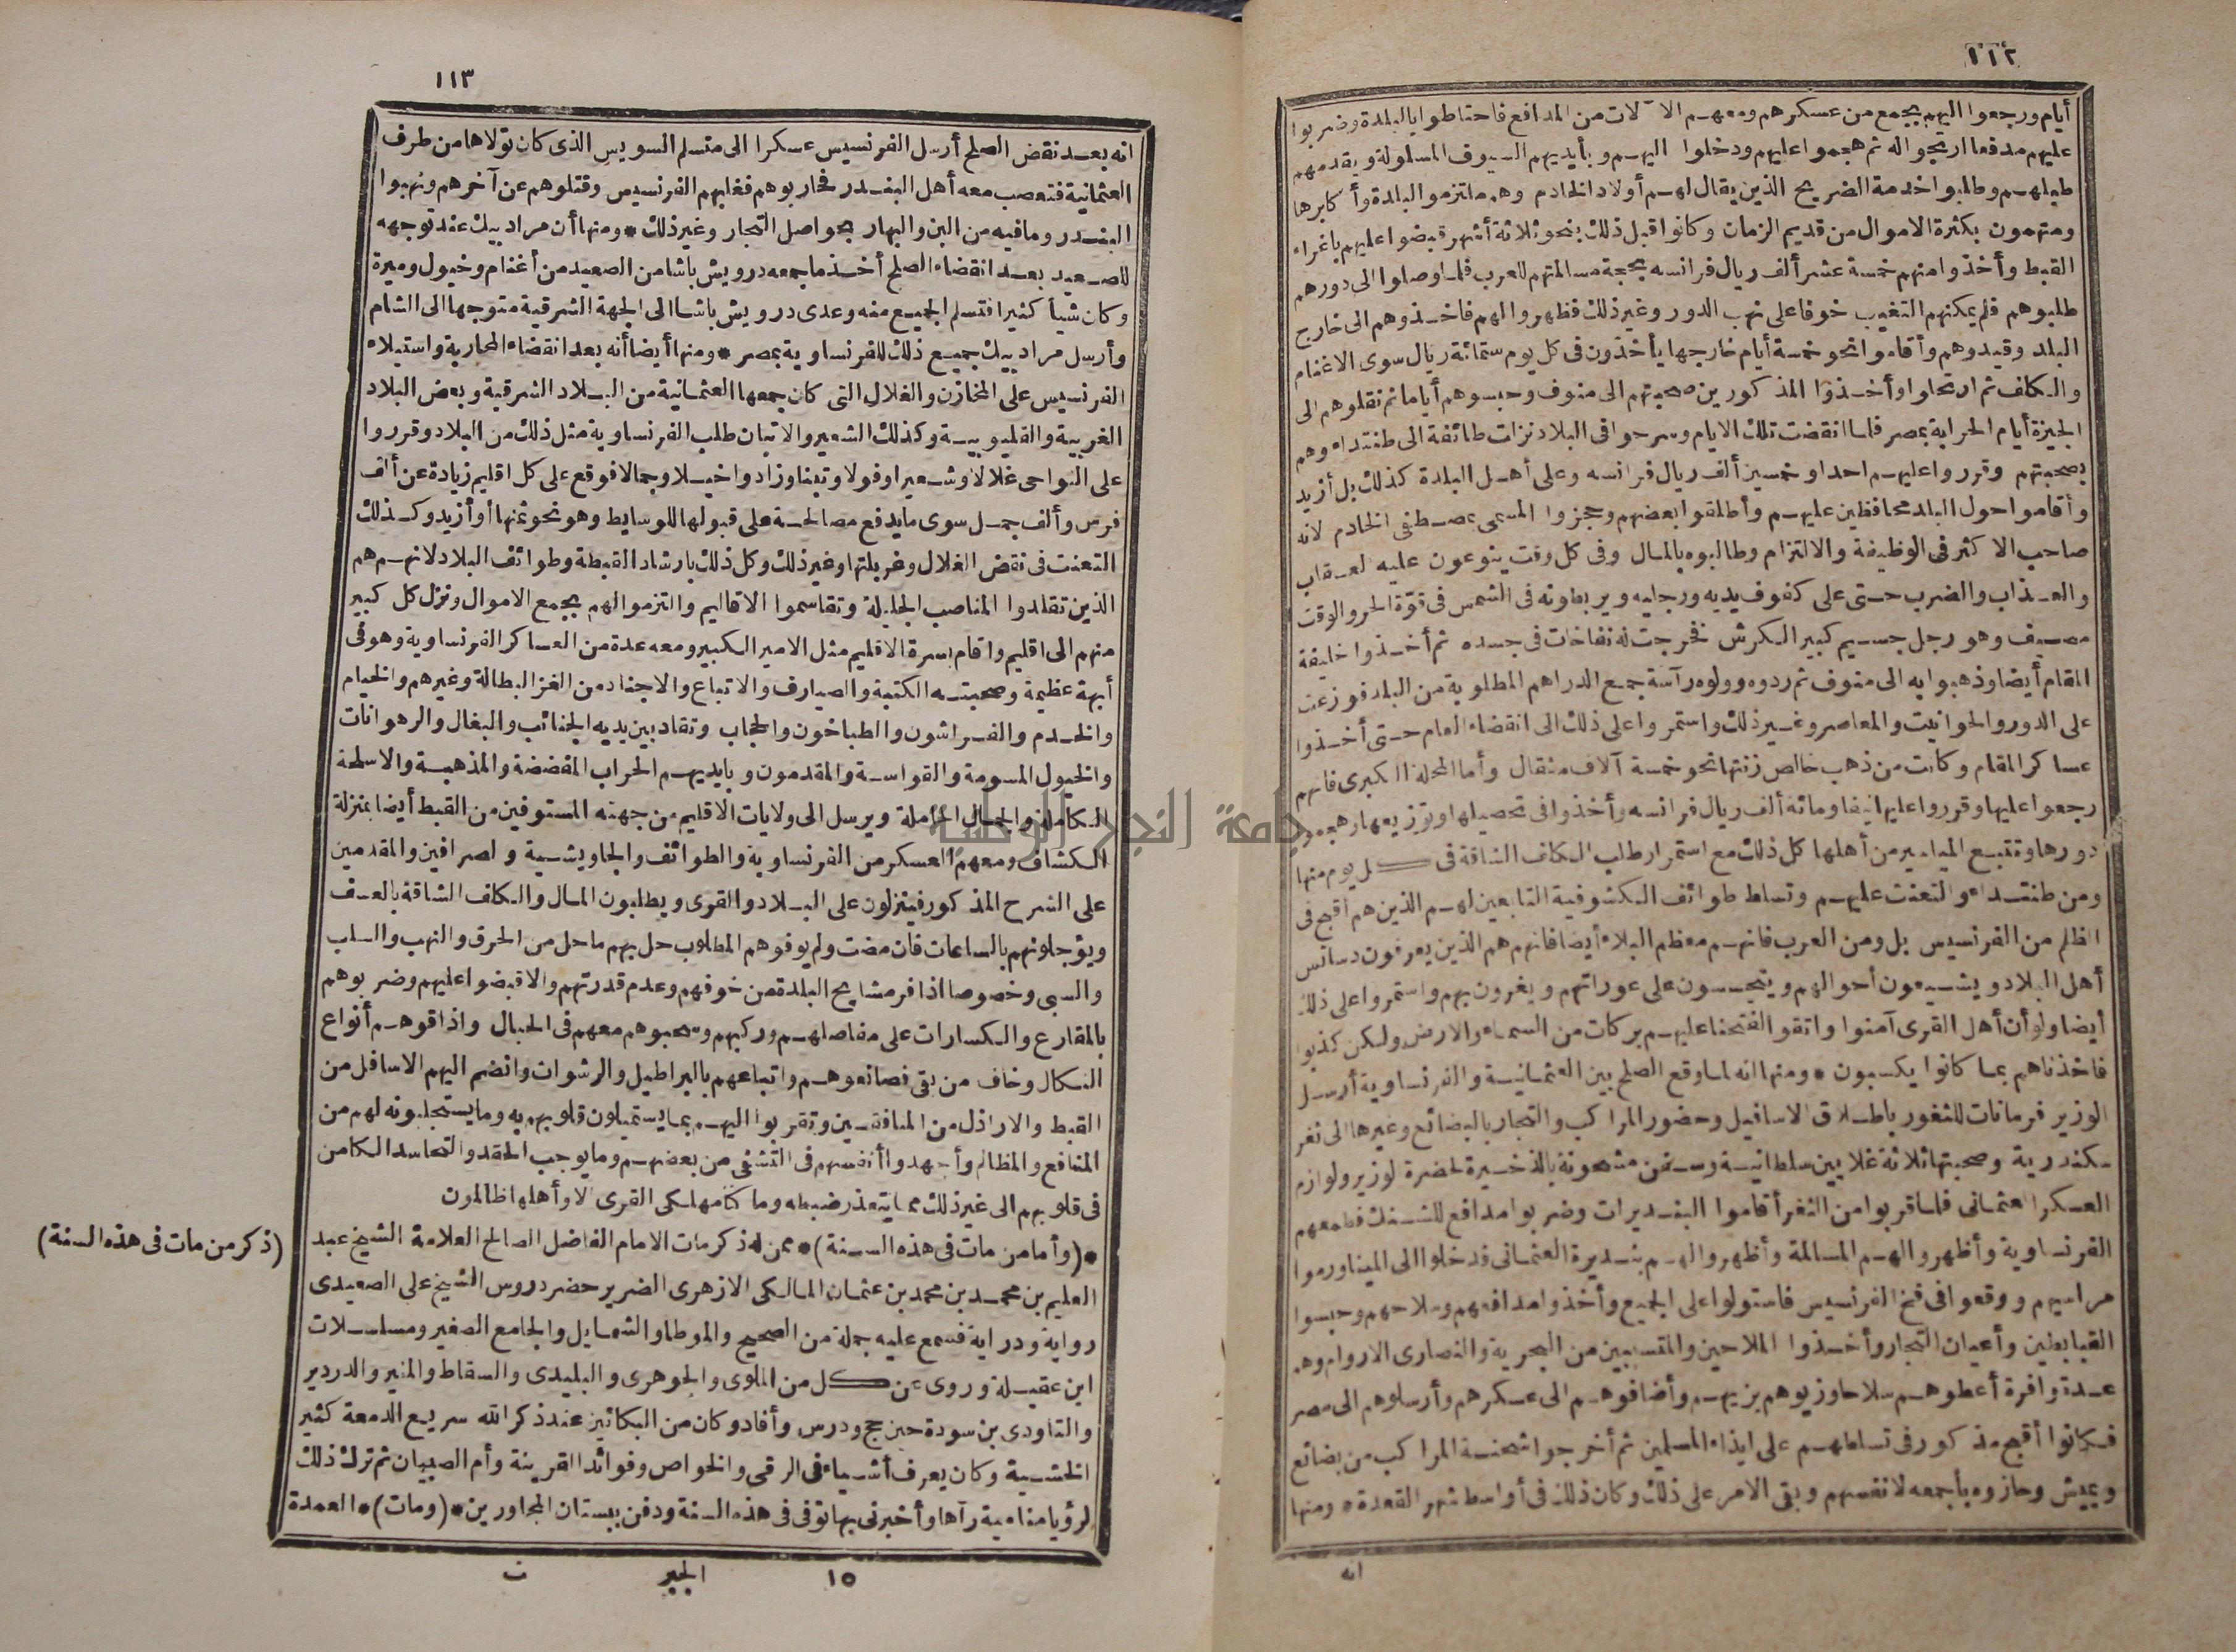 ١١٢
أيام ورجعوا اليهم بجمع من عسكرهم ومعهم الآلات من المدافع فاحتاطوا بالبلدة وضربوا
عليهم مدفعا ارتجوا له ثم هجموا عليهم ودخلوا اليهم وبأيديهم السيوف المسلولة ويقدمهم
طبلهم وطلبوا خدمة الضريح الذين يقال لهم أولاد الخادم وهم ملتزموا البلدة وأكابرها
ومتهمون بكثرة الاموال من قديم الزمان وكانوا قبل ذلك بنحو ثلاثة أشهر قبضوا عليهم باغراء
القبط وأخذوا منهم خمسة عشر ألف ريال فرانسه بحجة مسالمتهم للعرب فلما وصلوا الى دورهم
طلبوهم فلم يمكنهم التغيب خوفا على نهب الدور وغير ذلك فظهروا لهم فاخذوهم الى خارج
البلد وقيدوهم وأقاموا نحو خمسة أيام خارجها يأخذون فى كل يوم ستمائة ريال سوى الاغنام
والكلف ثم ارتحلوا وأخذوا المذكورين صحبتهم الى منوف وحبسوهم أياما ثم نقلوهم الى
الجيزة أيام الحرابة بمصر فلما انقضت تلك الايام وسرحوا فى البلاد نزلت طائفة الى طنتداء وهم
بصحبتهم وقرروا عليهم احدا وخمسين ألف ريال فرانسه وعلى أهل البلدة كذلك بل أزيد
وأقاموا حول البلد محافظين عليهم وأطلقوا بعضهم وحجزوا المسمى بمصطفى الخادم لانه
صاحب الاكثر فى الوظيفة والالتزام وطالبوه بالمال وفى كل وقت ينوعون عليه العقاب
والعذاب والضرب حتى على كفوف يديه ورجليه ويربطونه فى الشمس فى قوّة الحر والوقت
مصيف وهو رجل جسيم كبير الكرش فخرجت له نفاخات فى جسده ثم أخذوا خليفة
المقام أيضا وذهبوا به الى منوف ثم ردوه وولوه رآسة جمع الدراهم المطلوبة من البلد فوزعت
على الدور والحوانيت والمعاصر وغير ذلك واستمروا على ذلك الى انقضاء العام حتى أخذوا
عساكر المقام وكانت من ذهب خالص زنتها نحو خمسة آلاف مثقال وأما المحلة الكبرى فانهم
رجعوا عليها وقرروا عليها نيفا ومائة ألف ريال فرانسه وأخذوا فى تحصيلها وتوزيعها وهجموا
دورها وتتبع المياسير من أهلها كل ذلك مع استمرار طلب الكلف الشاقة فى كل يوم منها
ومن طنتداء والتعنت عليهم وتسلط طوائف الكشوفية التابعين لهم الذين هم أقبح فى
الظلم من الفرنسيس بل ومن العرب فانهم معظم البلاء أيضا فانهم هم الذين يعرفون دسائس
أهل البلاد ويشيعون أحوالهم ويتجسسون على عوراتهم ويغرون بهم واستمروا على ذلك
أيضا ولو أن أهل القرى آمنوا واتقوا لفتحنا عليهم بركات من السماء والارض ولكن كذبوا
فاخذناهم بما كانوا يكسبون * ومنها انه لما وقع الصلح بين العثمانية والفرنساوية أرسل
الوزير فرمانات للثغور باطلاق الاسافيل وحضور المراكب والتجار بالبضائع وغيرها الى ثغر
سكندرية وصحبتها ثلاثة غلايين سلطانية وسفن مشحونة بالذخيرة لحضرة الوزير ولوازم
العسكر العثمانى فلما قربوا من الثغر أقاموا البنديرات وضربوا مدافع للشنك فطمعهم
الفرنساوية وأظهروا لهم المسالمة وأظهروا لهم بنديرة العثمانى فدخلوا الى المينا ورموا
مراسيهم ووقعوا فى فخ الفرنسيس فاستولوا على الجميع وأخذوا مدافعهم وسلاحهم وحبسوا
القباطين وأعيان التجار وأخذوا الملاحين والمتسببين من البحرية والنصارى الاروام وهم
عدة وافرة أعطوهم سلاحا وزيوهم بزيهم وأضافوهم الى عسكرهم وأرسلوهم الى مصر
فكانوا أقبح مذكور فى تسلطهم على ايذاء المسلمين ثم أخرجوا شحنة المراكب من بضائع
ويميش وحازوه بأجمعه لانفسهم وبقى الامر على ذلك وكان ذلك فى أواسط شهر القعدة * ومنها
انه
١١٣
انه بعد نقض الصلح أرسل الفرنسيس عسكرا الى متسلم السويس الذى كان تولاها من طرف
العثمانية فتعصب معه أهل البندر فحاربوهم فغلبهم الفرنسيس وقتلوهم عن آخرهم ونهبوا
البندر وما فيه من البن والبهار بحواصل التجار وغير ذلك * ومنها أن مراد بيك عند توجهه
للصعيد بعد انقضاء الصلح أخذ ما جمعه درويش باشا من الصعيد من أغنام وخيول وميرة
وكان شيأ كثيرا فتسلم الجميع منه وعدى درويش باشا الى الجهة الشرقية متوجها الى الشام
وأرسل مراد بيك جميع ذلك للفرنساوية بمصر * ومنها أيضا أنه بعد انقضاء المحاربة واستيلاء
الفرنسيس على المخازن والغلال التى كان جمعها العثمانية من البلاد الشرقية وبعض البلاد
الغربية والقليوبية وكذلك الشعير والاتبان طلب الفرنساوية مثل ذلك من البلاد وقرروا
على النواحى غلالا وشعيرا وفولا وتبنا وزادوا خيلا وجمالا فوقع على كل اقليم زيادة عن ألف
فرس وألف جمل سوى ما يدفع مصالحة على قبولها للوسايط وهو نحو ثمنها أو أزيد وكذلك
التعنت فى نقض الغلال وغربلتها وغير ذلك وكل ذلك بارشاد القبطة وطوائف البلاد لانهم هم
الذين تقلدوا المناصب الجليلة وتقاسموا الاقاليم والتزموا لهم بجمع الاموال ونزل كل كبير
منهم الى اقليم واقام بسرة الاقليم مثل الامير الكبير ومعه عدة من العساكر الفرنساوية وهو فى
أبهة عظيمة وصحبته الكتبة والصيارف والاتباع والاجناد من الغز البطالة وغيرهم والخيام
والخدم والفراشون والطباخون والحجاب وتقاد بين يديه الجنائب والبغال والرهوانات
والخيول المسومة والقواسة والمقدمون وبايديهم الحراب المفضضة والمذهبة والاسلحة
الكاملة والجمال الحاملة ويرسل الى ولايات الاقليم من جهته المستوفين من القبط أيضا بمنزلة
الكشاف ومعهم العسكر من الفرنساوية والطوائف والجاويشية والصرافين والمقدمين
على الشرح المذكور فينزلون على البلاد والقرى ويطلبون المال والكلف الشاقة بالعسف
ويؤجلونهم بالساعات فان مضت ولم يوفوهم المطلوب حل بهم ما حل من الحرق والنهب والسلب
والسبى وخصوصا اذا فر مشايخ البلدة من خوفهم وعدم قدرتهم والا قبضوا عليهم وضربوهم
بالمقارع والكسارات على مفاصلهم وركبهم وسحبوهم معهم فى الحبال واذاقوهم أنواع
النكال وخاف من بقى فصانعوهم واتباعهم بالبراطيل والرشوات وانضم اليهم الاسافل من
القبط والاراذل من المنافقين وتقربوا اليهم بما يستميلون قلوبهم به وما يستجلبونه لهم من
المنافع والمظالم وأجهدوا أنفسهم فى التشفى من بعضهم وما يوجب الحقد والتحاسد الكامن
فى قلوبهم الى غير ذلك مما يتعذر ضبطه وما كنا مهلكى القرى الا وأهلها ظالمون
*(وأما من مات فى هذه السنة)* ممن له ذكر مات الامام الفاضل الصالح العلامة الشيخ عبد
(ذكر من مات فى هذه السنة)
العليم بن محمد بن محمد بن عثمان المالكى الازهرى الضرير حضر دروس الشيخ على الصعيدى
رواية ودراية فسمع عليه جملة من الصحيح والموطا والشمايل والجامع الصغير ومسلسلات
ابن عقيلة وروى عن كل من الملوى والجوهرى والبليدى والسقاط والمنير والدردير
والتاودى بن سودة حين حج ودرس وأفاد وكان من البكائين عند ذكر الله سريع الدمعة كثير
الخشية وكان يعرف أشياء فى الرقى والخواص وفوائد القرينة وأم الصبيان ثم ترك ذلك
لرؤيا منامية رآها وأخبرنى بها توفى فى هذه السنة ودفن ببستان المجاورين *(ومات)* العمدة
١٥ الجبر ث
جامعة النجاح الوطنية